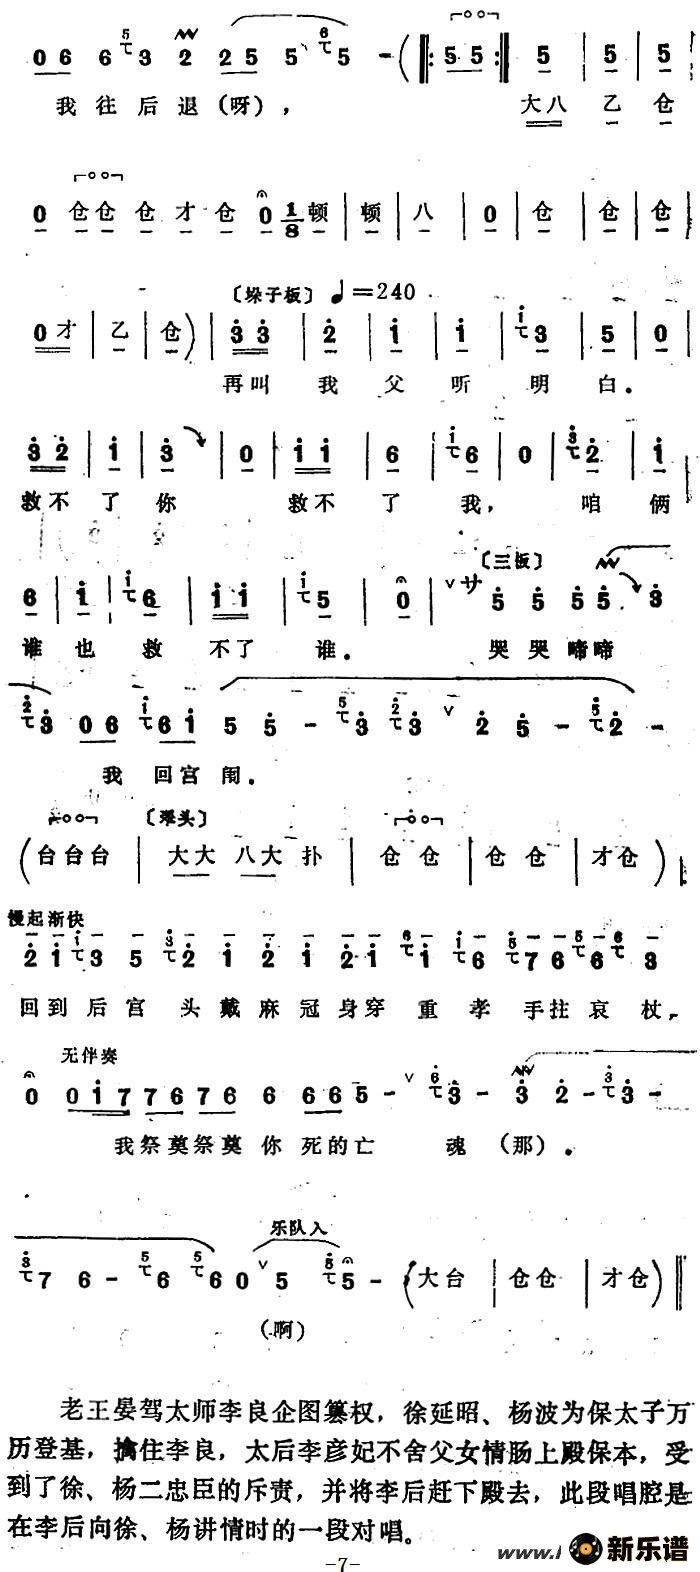 0 6 6 5 3 2 2 5 5 6 5 - ( 5 5 5 5 5
我往后退(呀), 大八 乙 仓
0 仓 仓 仓 才 仓 0 1/8 顿 顿 八 0 仓 仓 仓
〔垛子板〕 ♩=240
0 才 乙 仓 ) 3 3 2 1 1 1 3 5 0
再叫 我 父 听 明 白.
3 2 1 3 0 1 1 6 1 6 0 3 2 1
救不 了 你 救不 了 我, 咱 俩
〔三板〕
6 1 1 6 1 1 1 5 0 ∨ サ 5 5 5 5 3
谁 也 救 不了 谁. 哭 哭 啼啼
2 3 0 6 1 6 1 5 5 - 5 3 2 3 ∨ 2 5 - 5 2 -
我 回宫 闱.
〔弹头〕
( 台台台 大大 八大 扑 仓 仓 仓 仓 才仓 )
慢起渐快
2 1 1 3 5 3 2 1 2 1 2 1 6 1 1 6 5 7 6 5 6 6 3
回到 后 宫 头 戴 麻 冠 身 穿 重 孝 手拄 哀 杖,
无伴奏
0 0 1 7 7 6 7 6 6 6 6 5 - ∨ 6 3 - 3 2 - 3 3 -
我祭奠祭奠 你 死的亡 魂 (那).
乐队入
3 7 6 - 5 6 5 6 0 ∨ 5 5 5 - ( 大台 仓仓 才仓 )
(啊)
老王晏驾太师李良企图篡权, 徐延昭、杨波为保太子万
历登基, 擒住李良, 太后李彦妃不舍父女情肠上殿保本, 受
到了徐、杨二忠臣的斥责, 并将李后赶下殿去, 此段唱腔是
在李后向徐、杨讲情时的一段对唱。
www. 新乐谱
-7-